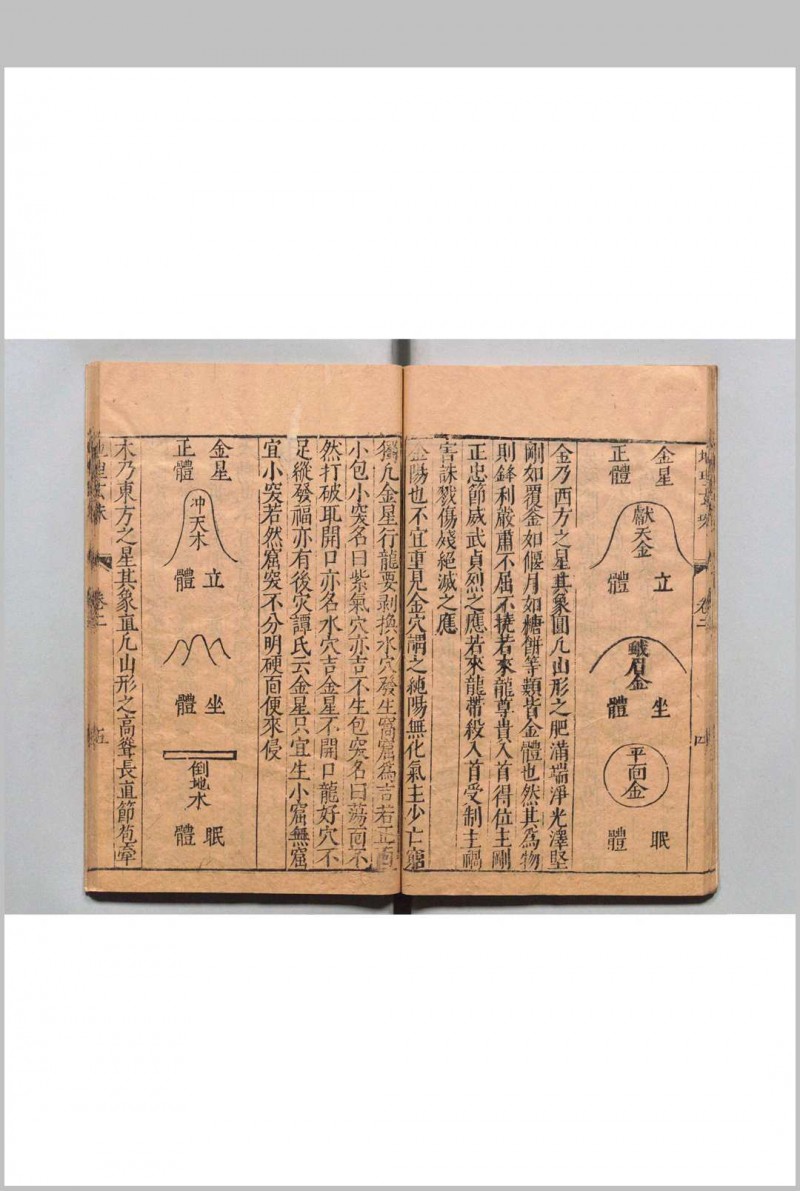 卷二
四
金星
正體
獻天金
立體
蛾眉金
坐體
平面金
眠體
金乃西方之星其象圓凡山形之肥滿端淨光澤堅
剛如覆釜如偃月如糖餅等類皆金體也然其為物
則鋒利嚴肅不屈不撓若來龍尊貴入首得位主剛
正忠節威武貞烈之應若來龍帶殺入首受制主禍
害誅戮傷殘絕滅之應
金陽也不宜重見金穴謂之純陽無化氣主少亡寡
獨凡金星行龍要剥換水穴發生窩窟為吉若正面
小包小突名曰紫氣穴亦吉不生包突名曰蕩面不
然打破耴開口亦名水穴吉金星不開口龍好穴不
足縱發福亦有後灾譚氏云金星只宜生小窟無窟
宜小突若然窟突不分明硬面便來侵
金星
正體
冲天木
立體
坐體
倒地木
眠體
木乃東方之星其象直凡山形之高聳長直節苞牽
地理玄珠
卷二
五